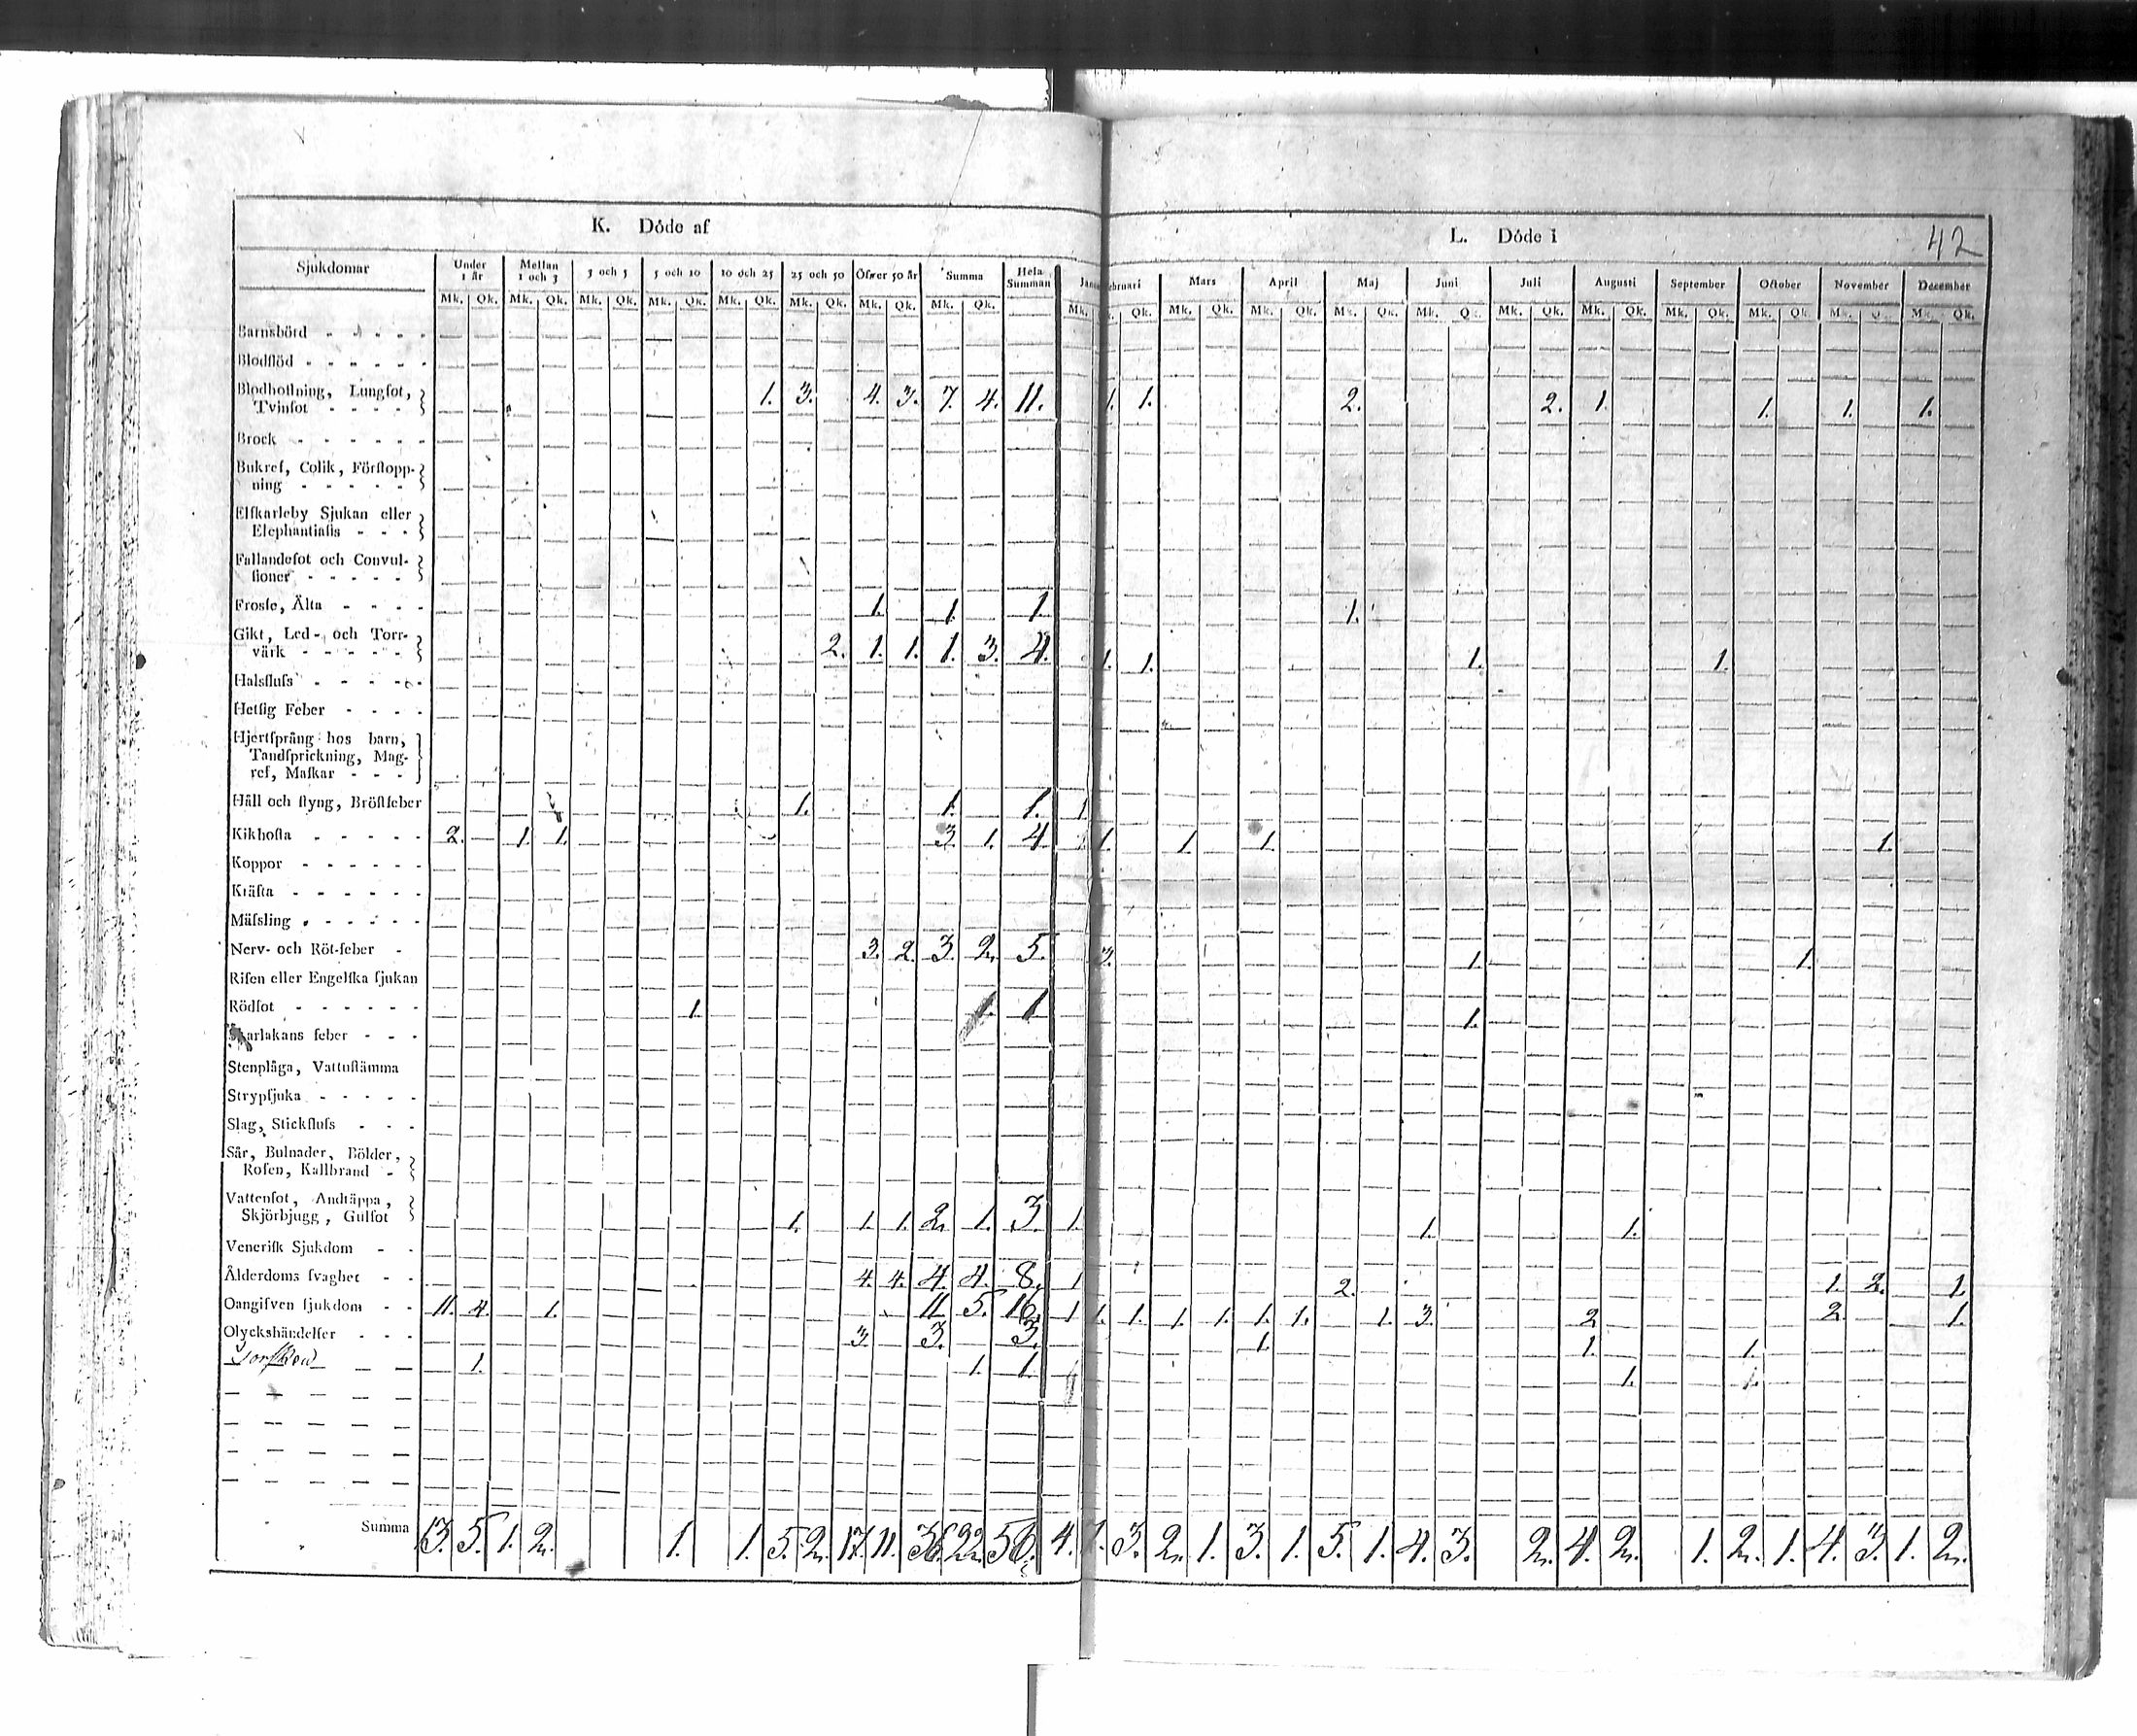 42
K. Döde af
L. Döde i
Sjukdomar | Under 1 år | Mellan 1 och 3 | 3 och 5 | 5 och 10 | 10 och 25 | 25 och 50 | Öfver 50 år | Summa | Hela Summan | Janu | ebruari | Mars | April | Maj | Juni | Juli | Augusti | September | October | November | December
Mk. Qk. Mk. Qk. Mk. Qk. Mk. Qk. Mk. Qk. Mk. Qk. Mk. Qk. Mk. Qk. Mk. Qk. Mk. Qk. Mk. Qk. Mk. Qk. Mk. Qk. Mk. Qk. Mk. Qk. Mk. Qk. Mk. Qk. Mk. Qk. Mk. Qk.
Barnsbörd
Blodflöd
Blodhoſtning, Lungſot,
Tvinſot 1. 3. 4. 3. 7. 4. 11. 1. 1. 2. 2. 1. 1. 1. 1.
Brock
Bukref, Colik, Förſtopp-
ning
Elfkarleby Sjukan eller
Elephantiaſis
Fallandeſot och Convul-
ſioner
Froſſe, Älta 1. 1. 1. 1.
Gikt, Led- och Torr-
värk 2. 1. 1. 1. 3. 4. 1. 1. 1. 1.
Halsfluſs
Hetſig Feber
Hjertſprång hos barn,
Tandſprickning, Mag-
ref, Maſkar
Håll och ſtyng, Bröſtfeber 1. 1. 1. 1.
Kikhoſta 2. 1. 1. 3. 1. 4. 1. 1. 1. 1.
Koppor
Kräfta
Mäſsling
Nerv- och Röt-feber 3. 2. 3. 2. 5. 3. 1. 1.
Riſen eller Engelſka ſjukan
Rödſot 1. 1. 1 1.
arlakans feber
Stenplåga, Vattuſtämma
Strypſjuka
Slag, Stickfluſs
Sår, Bulnader, Bölder,
Roſen, Kallbrand
Vattenſot, Andtäppa,
Skjörbjugg, Gulſot 1. 1. 1. 2. 1. 3. 1. 1. 1.
Veneriſk Sjukdom
Ålderdoms ſvaghet 4. 4. 4. 4. 8. 1 2. 1. 2. 1.
Oangifven ſjukdom 11. 4. 1. 11. 5. 16. 1 1. 1. 1. 1. 1. 1. 1. 3. 2 2. 1.
Olyckshändelſer 3. 3. 3. 1. 1. 1.
Torſken 1. 1. 1. 1. 1.
Summa 13. 5. 1. 2. 1. 1. 5. 2. 17. 11. 36. 22. 58. 4. 1. 3. 2. 1. 3. 1. 5. 1. 4. 3. 2. 4. 2. 1. 2. 1. 4. 3. 1. 2.